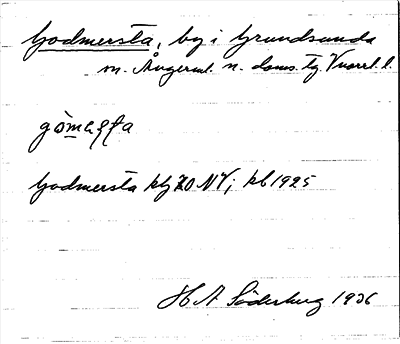 Godmersta, by i Grundsunda
sn. Ångerml. n. doms. tg. Vnorrl. l.
Godmersta kbj 20 NV; kb 1925
H A Söderberg 1936